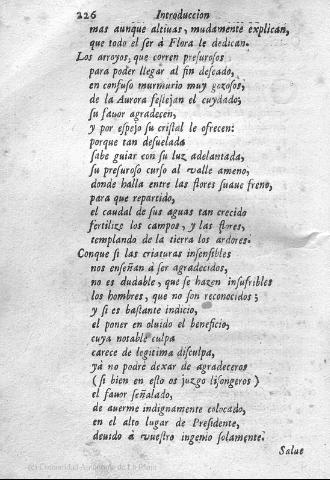 226 Introduccion
mas aunque altiuas, mudamente explican,
que todo el ser à Flora le dedican.
Los arroyos, que corren presurosos
para poder llegar al fin deseado,
en confuso murmurio muy gozosos,
de la Aurora festejan el cuydado;
su fauor agradecen,
y por espejo su cristal le ofrecen:
porque tan desuelada
sabe guiar con su luz adelantada,
su presuroso curso al valle ameno,
donde halla entre las flores suaue freno,
para que repartido,
el caudal de sus aguas tan crecido
fertilize los campos, y las flores,
templando de la tierra los ardores.
Conque si las criaturas insensibles
nos enseñan à ser agradecidos,
no es dudable, que se hazen insufribles
los hombres, que no son reconocidos;
y si es bastante indicio,
el poner en oluido el beneficio,
cuya notable culpa
carece de legitima disculpa,
yà no podrè dexar de agradeceros
(si bien en esto os juzgo lisongeros)
el fauor señalado,
de auerme indignamente colocado,
en el alto lugar de Presidente,
deuido à vuestro ingenio solamente.
Salue
(c) Comunidad Autónoma de La Rioja